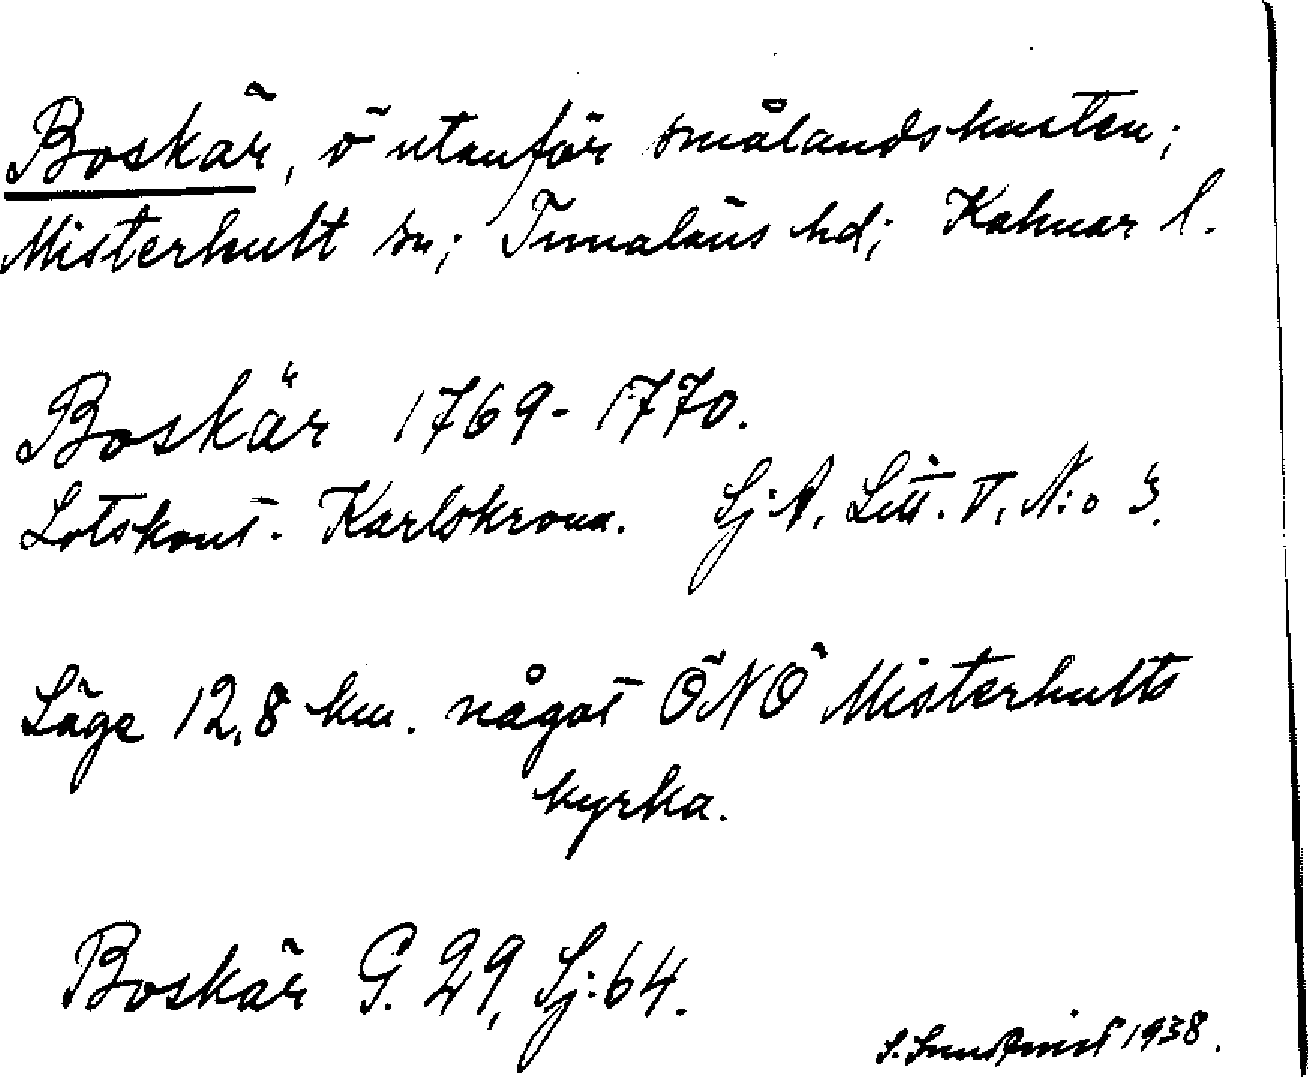 Boskär, ö utanför smålandskusten;
Misterhult sn; Tunaläns hd; Kalmar l.
Boskär 1769-1770.
Lotskont. Karlskrona. Sj:A. Litt. V, N:o 3.
Läge 12,8 km. något ÖNÖ Misterhults
kyrka.
Boskär G. 29, Sj:64.
S. Sundqvist 1938.